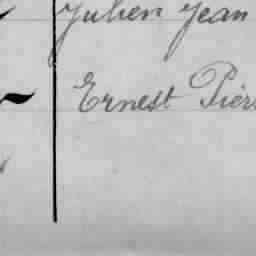 Julien Jean
Ernest Pier